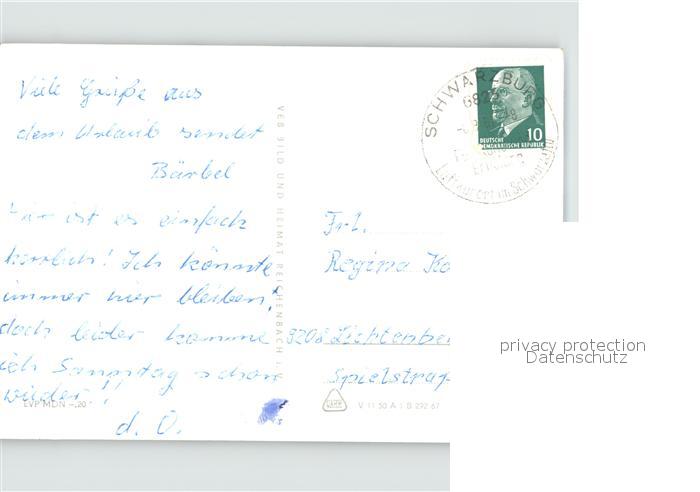 Viele Grüße aus
dem Urlaub sendet
Bärbel
Hier ist es einfach
herrlich! Ich könnte
immer hier bleiben,
doch leider komme
ich Samstag schon
wieder!
d. O.
EVP MDN -,20
VEB BILD UND HEIMAT REICHENBACH I. V.
SCHWARZBURG
6823
Erholung
Luftkurort im Schwarzatal
10
DEUTSCHE
DEMOKRATISCHE REPUBLIK
Frl.
Regina Ko
9208 Lichtenber
Spielstraß
V 11 50 A 1 B 292 67
privacy protection
Datenschutz